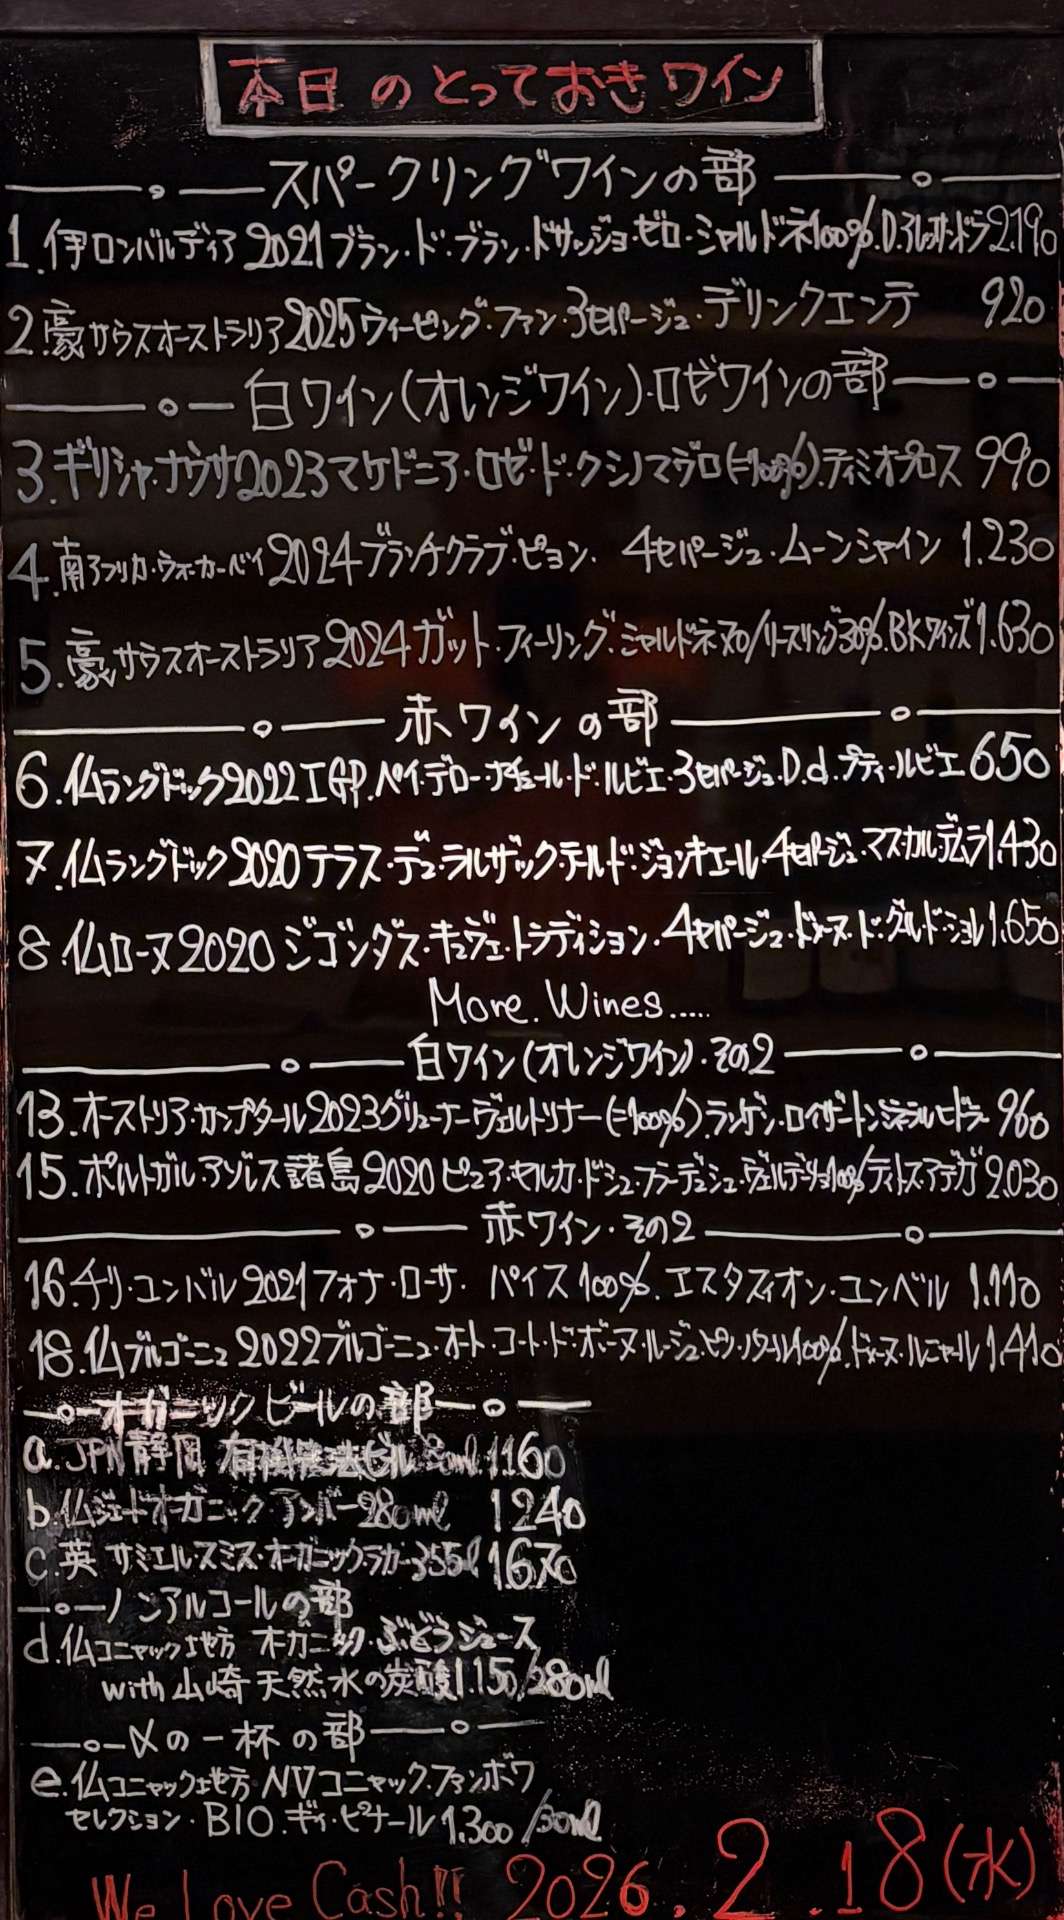 本日のとっておきワイン
スパークリングワインの部
1.伊ロンバルディア2021ブラン・ド・ブラン・ドサッジョ・ゼロ・シャルドネ100%.D.アレッサンドラ2.190
2.豪サウスオーストラリア2025ウィーピング・ファン・3セパージュ・デリンクエンテ 920
白ワイン(オレンジワイン)・ロゼワインの部
3.ギリシャ・ナウサ2023マケドニア・ロゼ・ド・クシノマヴロ(=100%).ティミオプロス 990
4.南アフリカ・ウォーカーベイ2024ブランケクラブ・ピョン. 4セパージュ・ムーンシャイン 1.230
5.豪サウスオーストラリア2024ガット・フィーリング.シャルドネ70/リースリング30%.BKワインズ1.630
赤ワインの部
6.仏ラングドック2022IGP.ペイ・デロー・ナチュール・ド・ルビエ・3セパージュ・D.d.プティ・ルビエ650
7.仏ラングドック2020テラス・デュ・ラルザックテールド・ジョンキエール・4セパージュ・マス・カルデムラ1.430
8.仏ローヌ2020ジゴンダス・キュヴェ・トラディション・4セパージュ・ドメーヌ・ド・グール・ド・ショル1.650
More.Wines.....
白ワイン(オレンジワイン)・その2
13.オーストリア・カンプタール2023グリューナーヴェルトリナー(=100%).ランゲン・ロイザートンミネラルヒドラー 960
15.ポルトガル.アゾレス諸島2020ピュア・セルカ・ドシュ・フラーデシュ・ヴェルデーリョ100%ティトス・アデガ2.030
赤ワイン・その2
16.チリ・ユンベル2021フォナ・ローサ パイス100%.エスタスィオン・ユンベル 1.110
18.仏ブルゴーニュ2022ブルゴーニュ・オート・コート・ド・ボーヌ・ルージュ・ピノ・ノワール100%.ドメーヌ・ルニャール1.410
オガニックビールの部
a.JPN静岡 有機発泡ビール ml.1160
b.仏ジェードオーガニックアンバー280ml 1240
c.英 サミエル・スミス・オーガニックラガー355ml1670
ノンアルコールの部
d.仏コニャック地方 オーガニック・ぶどうジュース
with山崎天然水の炭酸1.150/280ml
〆の一杯の部
e.仏コニャック地方・NVコニャック・ファンボワ
セレクション・BIO.ギィ・ピナール1.300/30ml
We Love Cash!! 2026.2.18(水)